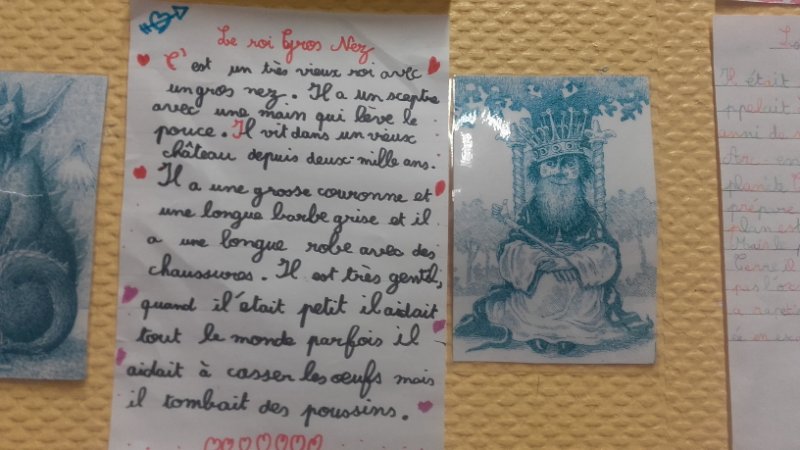 Le roi Gros Nez
C'est un très vieux roi avec
un gros nez. Il a un sceptre
avec une main qui lève le
pouce. Il vit dans un vieux
château depuis deux-mille ans.
Il a une grosse couronne et
une longue barbe grise et il
a une longue robe avec des
chaussures. Il est très gentil,
quand il était petit il aidait
tout le monde parfois il
aidait à casser les oeufs mais
il tombait des poussins.
Il était
ppelait
planète
prépare
plan est
Mais le
Terre il